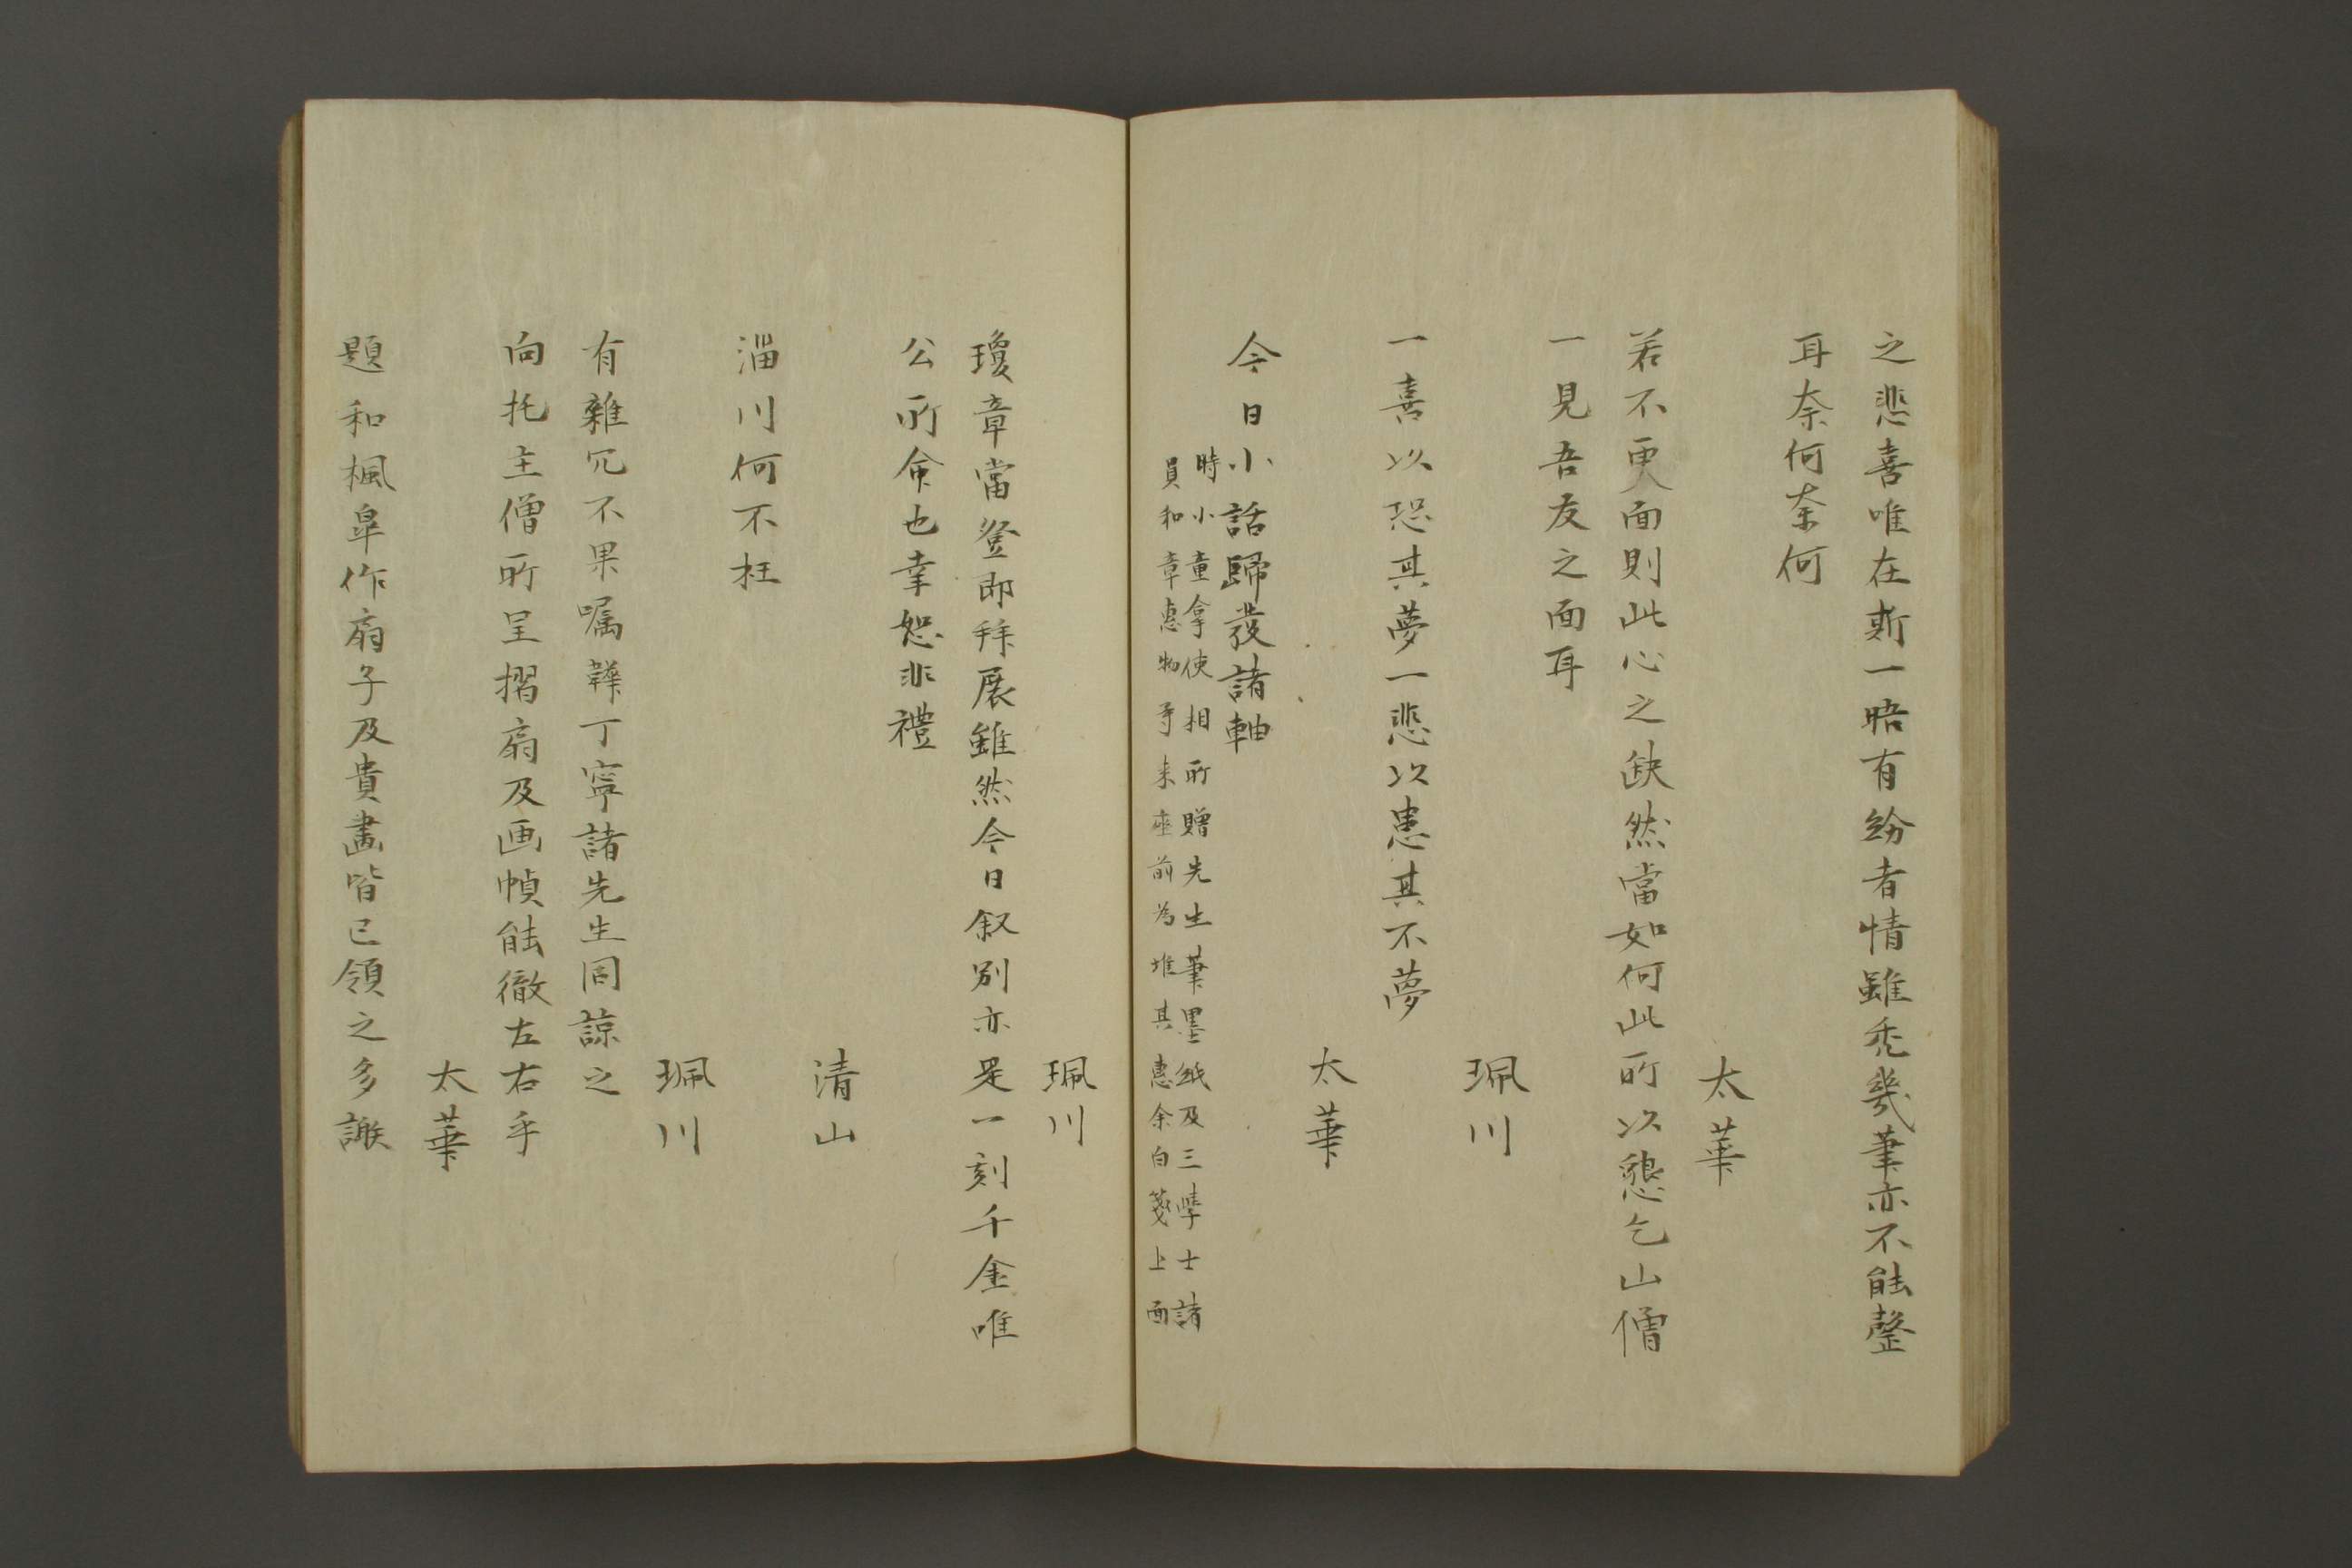 之悲喜唯在斯一晤有紛者情雖禿幾筆亦不能罄
耳奈何奈何
太華
若不更人面則此心之缺然當如何此所以懇乞山僧
一見吾友之面耳
珮川
一喜以恐其夢一悲以患其不夢
太華
今日小話歸後諸軸
時小童拿使相所贈先生筆墨紙及三學士諸
員和章惠物予來座前為堆其惠余白箋上面
珮川
瓊章當登即拜展雖然今日叙別亦是一刻千金唯
公所命也幸恕非禮
清山
淄川何不枉
珮川
有雜冗不果囑韡丁寧諸先生同諒之
向托主僧所呈摺扇及画幀能徹左右乎
太華
題和楓皐作扇子及貴畫皆已領之多謝